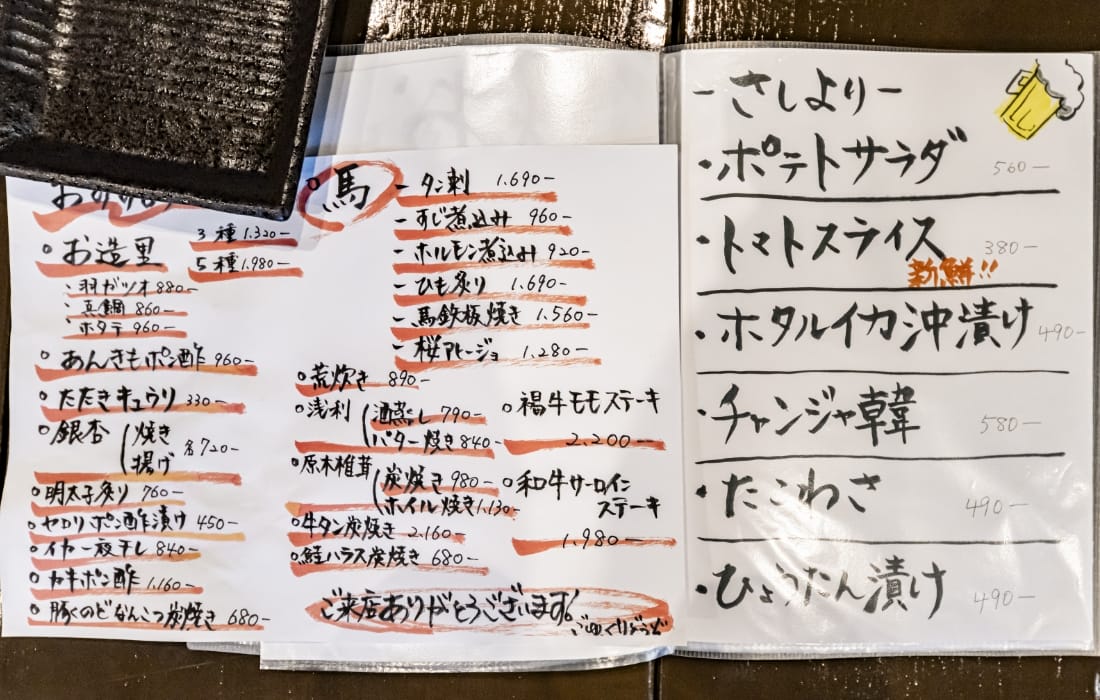 おすすめ
○お造里 3種 1.320-
5種 1.980-
・羽ガツオ 880-
・真鯛 860-
・ホタテ 960-
○あんきもポン酢 960-
○たたきキュウリ 330-
○銀杏 (焼き
揚げ 各720-
○明太子炙り 760-
○セロリポン酢漬け 450-
○イカ一夜干し 840-
○カキポン酢 1.160-
○豚のどなんこつ炭焼き 680-
○馬
- タン刺 1.690-
- すじ煮込み 960-
- ホルモン煮込み 920-
- ひも炙り 1.690-
- 馬鉄板焼き 1.560-
- 桜アヒージョ 1.280-
○荒炊き 890-
○浅利 (酒蒸し 790-
バター焼き 840-
○原木椎茸 (炭焼き 980-
ホイル焼き 1.130-
○牛タン炭焼き 2.160-
○鮭ハラス炭焼き 680-
○褐牛モモステーキ
2.200-
○和牛サーロイン
ステーキ
1.980-
ご来店ありがとうございます!
ごゆっくりどうぞ
-さしより-
・ポテトサラダ 560-
・トマトスライス 380-
新鮮!!
・ホタルイカ沖漬け 490-
・チャンジャ韓 580-
・たこわさ 490-
・ひょうたん漬け 490-